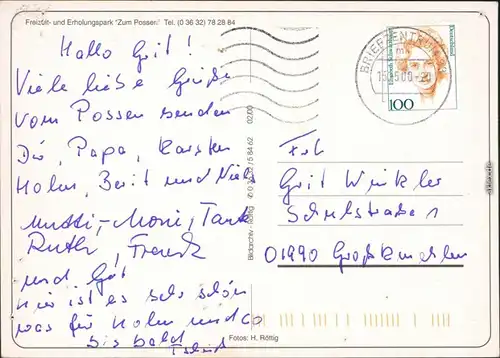 Freizeit- und Erholungspark "Zum Possen" Tel. (0 36 32) 78 28 84
Hallo Grit!
Viele liebe Grüße
vom Possen senden
Dir, Papa, Karsten
Holm, Berit und Niels
Mutti, Moni, Tante
Ruth, Frank
und
hier ist es sehr schön
was für Holm und Co
bis bald
Bildarchiv 02/00
Fotos: H. Röttig
BRIEFZENTRUM
Deutschland
100
Grit Winkler
Schulstraße 1
01990 Großkmehlen